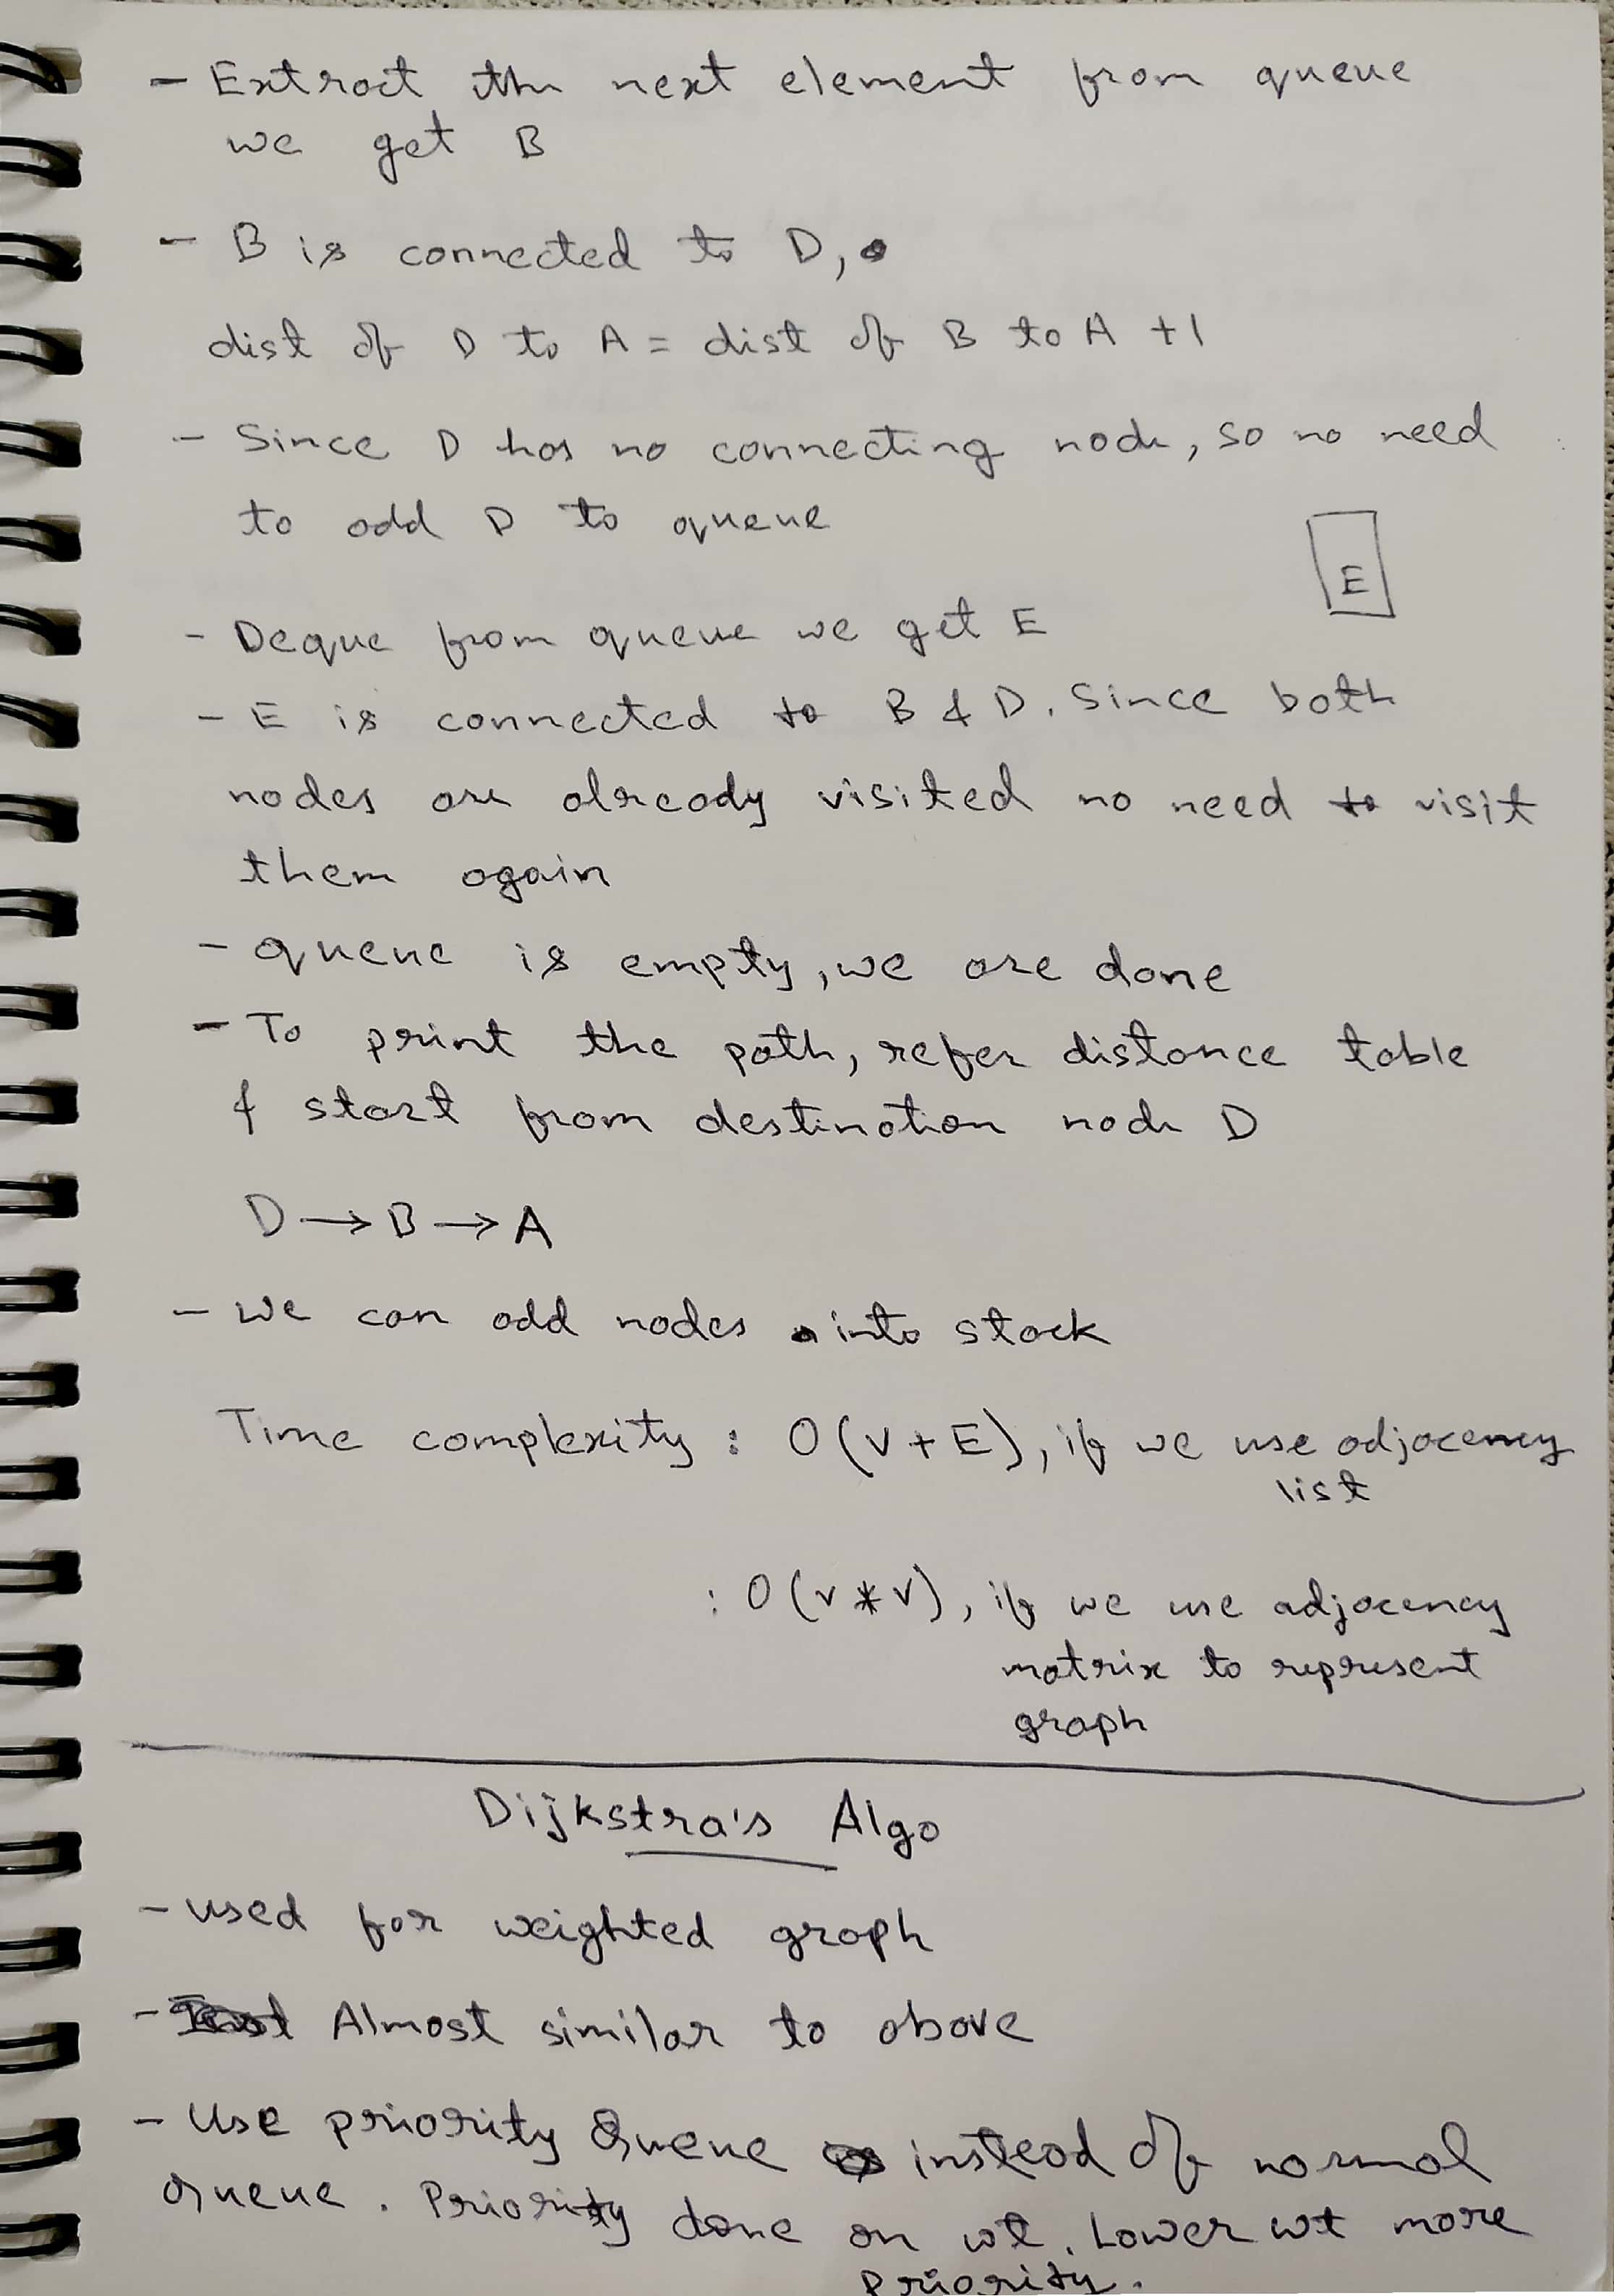 - Extract the next element from queue
we get B
- B is connected to D,
dist of D to A = dist of B to A +1
- Since D has no connecting node, so no need
to add D to queue
E
- Deque from queue we get E
- E is connected to B & D. Since both
nodes are already visited no need to visit
them again
- queue is empty, we are done
- To print the path, refer distance table
& start from destination node D
D → B → A
- we can add nodes into stack
Time complexity : O(V+E), if we use adjacency
list
: O(v*v), if we use adjacency
matrix to represent
graph
Dijkstra's Algo
- used for weighted graph
- Almost similar to above
- Use priority Queue instead of normal
Queue. Priority done on wt. Lower wt more
priority.